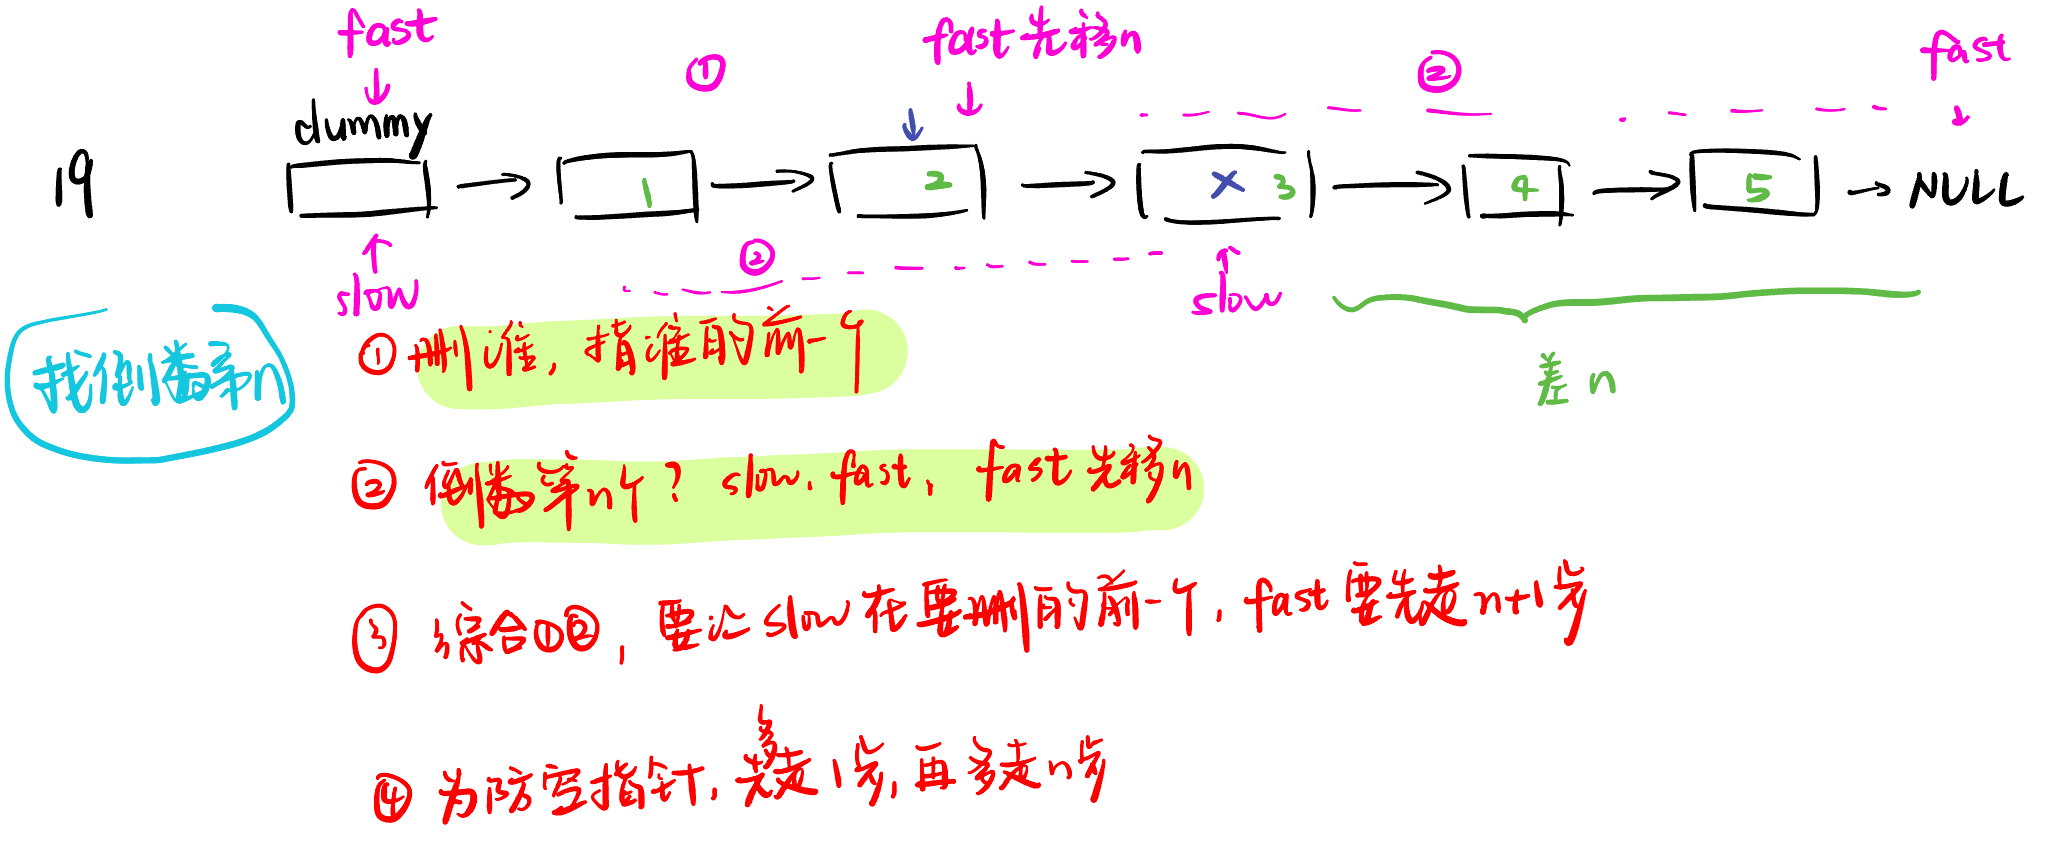 fast ① fast先移n ② fast
dummy
19 1 2 × 3 4 5 NULL
slow ② slow
找倒数第n
① 删谁，指谁的前一个
差n
② 倒数第n个？slow, fast, fast先移n
③ 综合①②，要让slow在要删的前一个，fast要先走n+1步
多
④ 为防空指针，先走1步，再多走n步